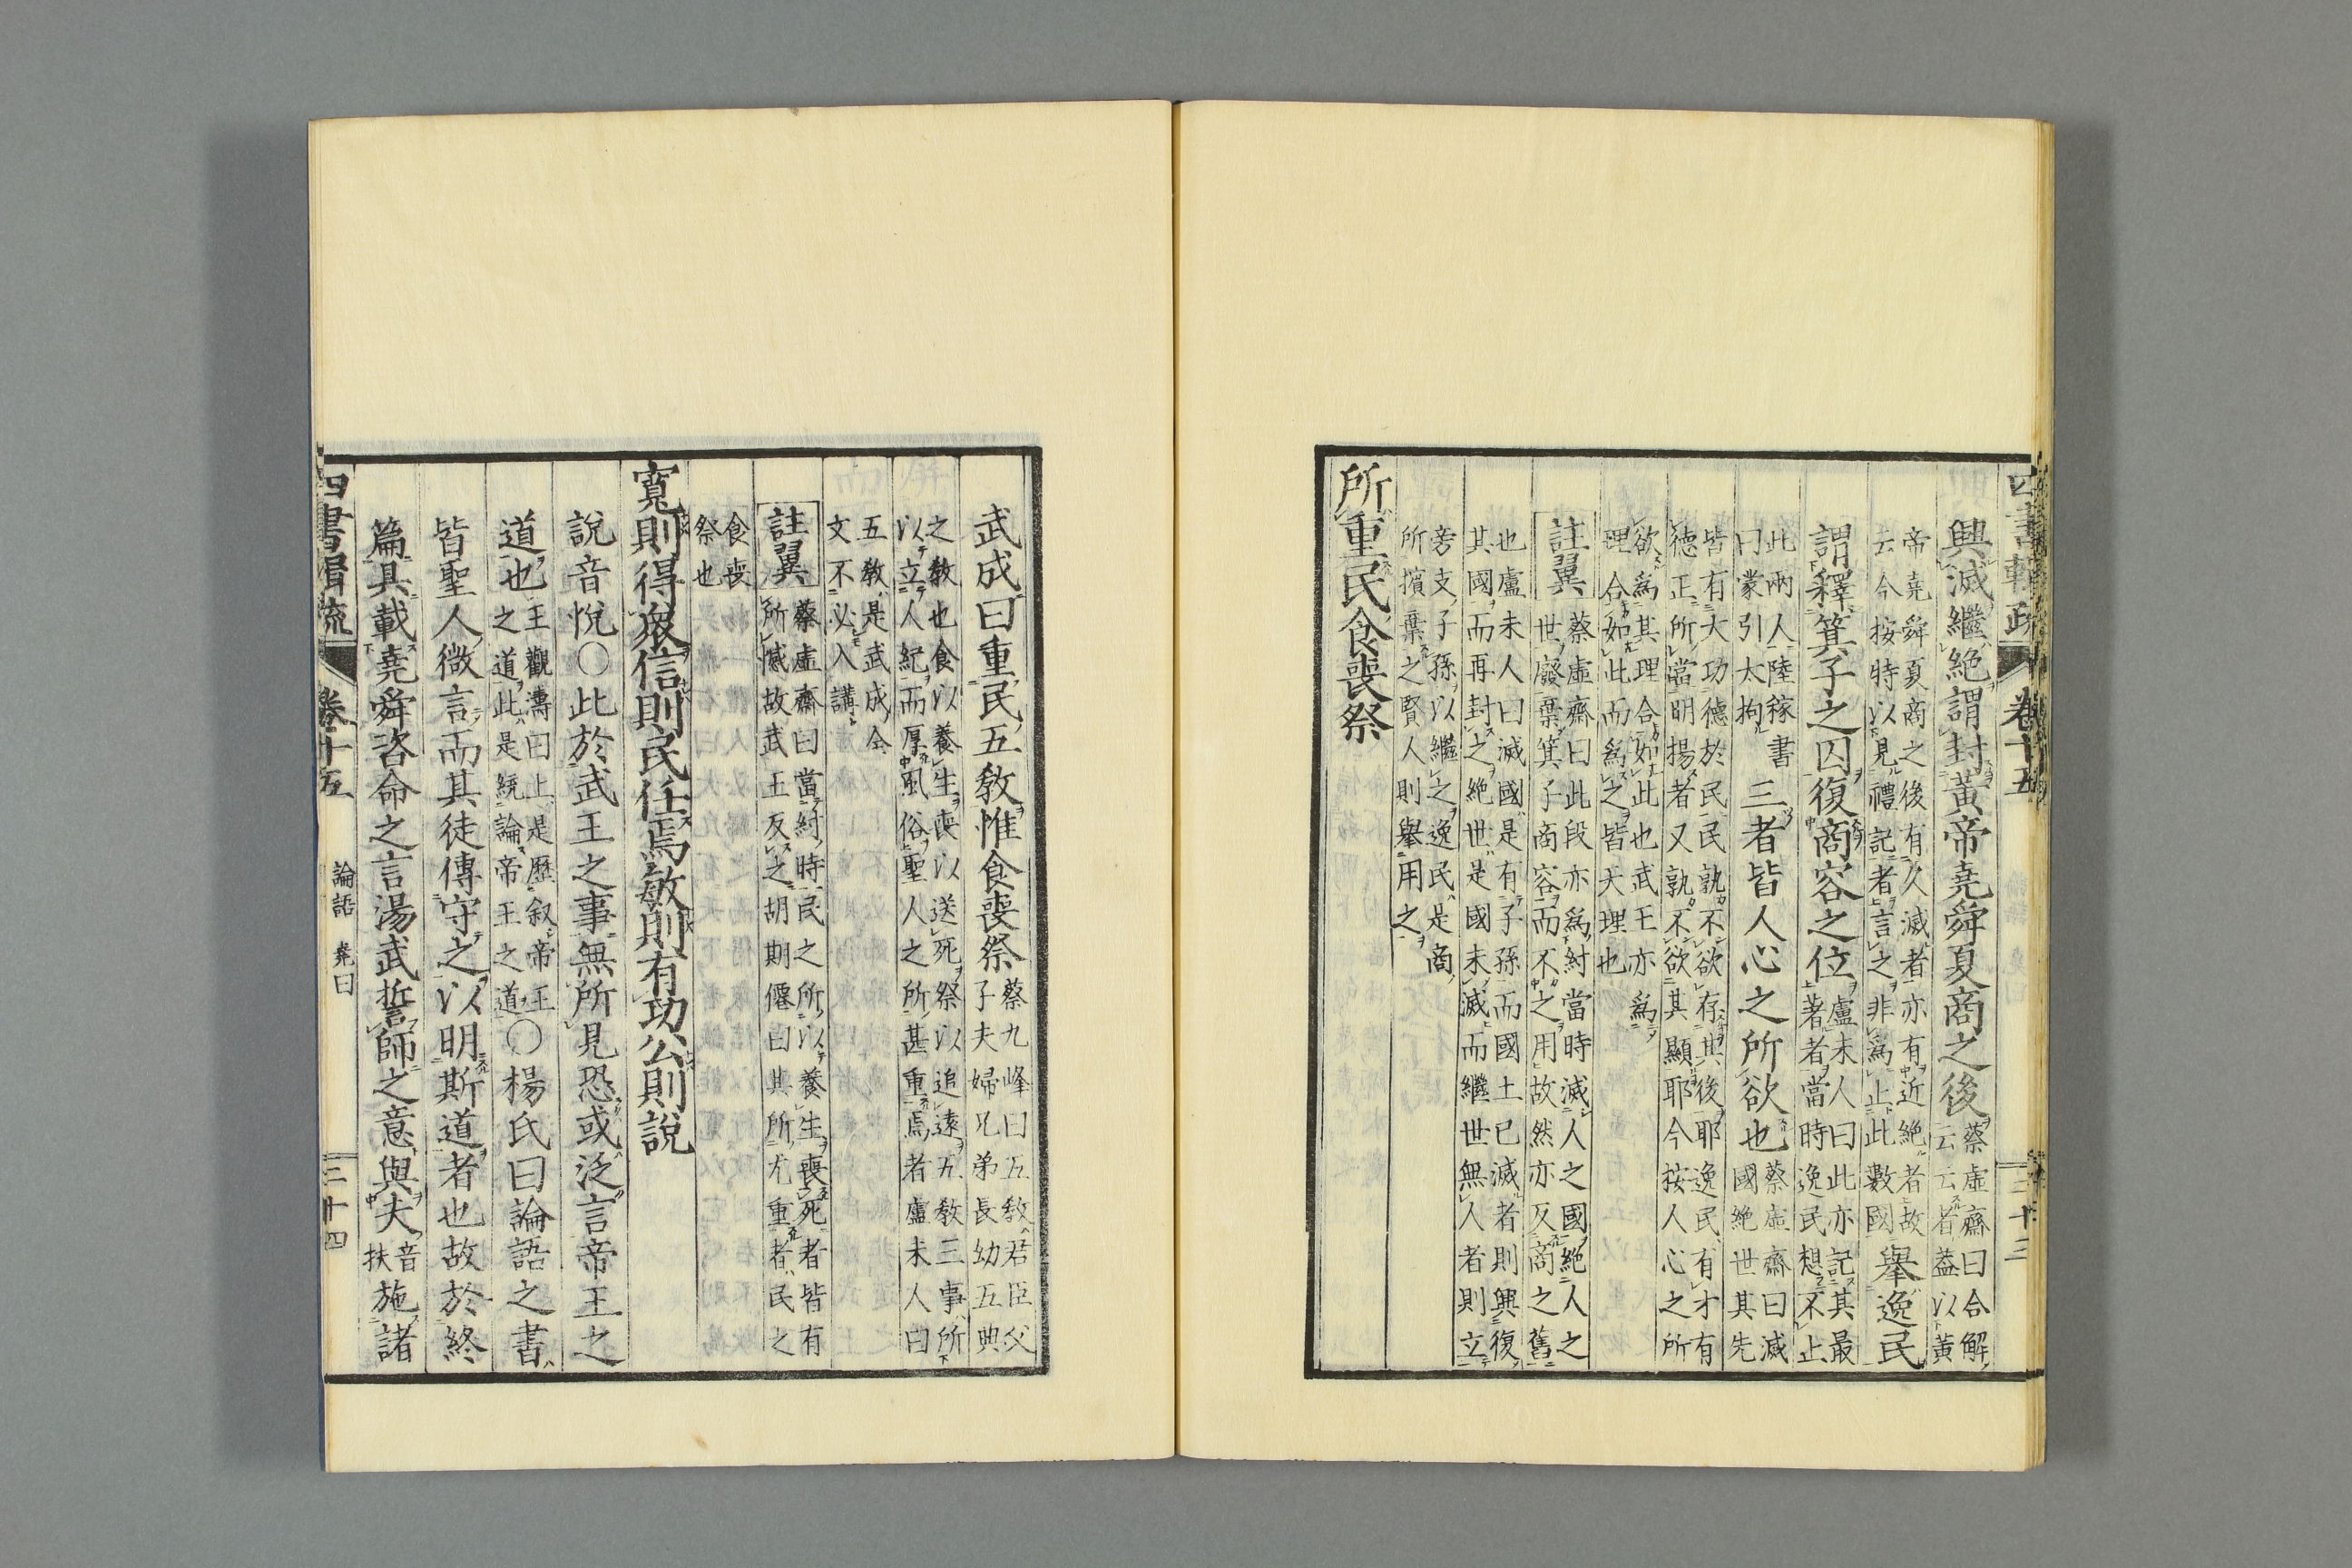 四書輯疏 卷十五 二十三
興滅繼絕謂封黃帝堯舜夏商之後蔡虛齋曰合解
云云者蓋以黃
帝堯舜夏商之後有久滅者亦有近絕者故
云今按特以見禮記者言之非爲止此數國舉逸民
謂釋箕子之囚復商容之位盧未人曰此亦記其最
著者當時逸民想不止
此兩人陸稼書
曰蒙引太拘三者皆人心之所欲也蔡虛齋曰滅
國絕世其先
皆有大功德於民民孰不欲存其後耶逸民有才有
德正所當明揚者又孰不欲其顯耶今按人心之所
欲爲其理合如此也武王亦爲
理合如此而爲之皆天理也
註翼蔡虛齋曰此段亦爲紂當時滅人之國絕人之
世廢棄箕子商容而不之用故然亦反商之舊
也盧未人曰滅國是有子孫而國土已滅者則興復
其國而再封之絕世是國未滅而繼世無人者則立
旁支子孫以繼之逸民是商
所擯棄之賢人則舉用之
所重民食喪祭
武成曰重民五教惟食喪祭蔡九峰曰五教君臣父
子夫婦兄弟長幼五典
之教也食以養生喪以送死祭以追遠五教三事所
以立人紀而厚風俗聖人之所甚重焉者盧未人曰
五教是武成全
文不必入講
註翼蔡虛齋曰當紂時民之所以養生喪死者皆有
所憾故武王反之胡期僊曰其所尤重者民之
食喪
祭也
寬則得衆信則民任焉敏則有功公則說
說音悅○此於武王之事無所見恐或泛言帝王之
道也王觀濤曰上是歷叙帝王
之道此是統論帝王之道○楊氏曰論語之書
皆聖人微言而其徒傳守之以明斯道者也故於終
篇具載堯舜咨命之言湯武誓師之意與夫音
扶施諸
四書輯疏 卷十五 論語 堯曰 二十四